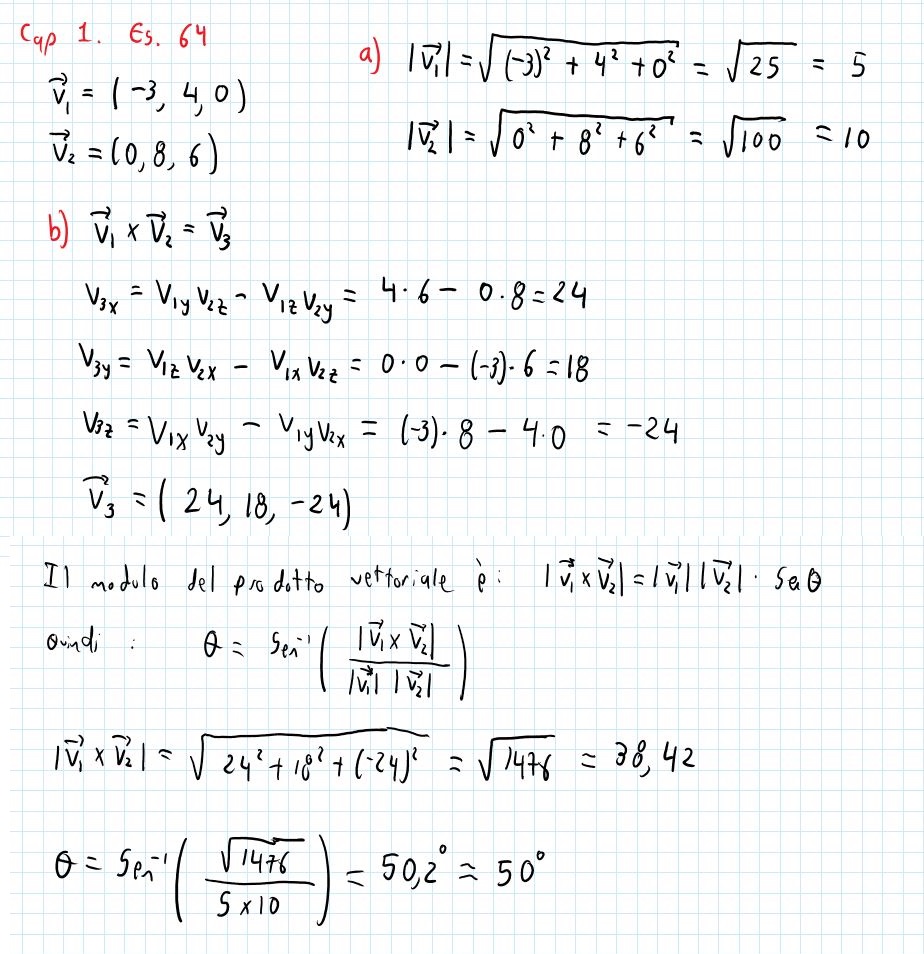 Cap 1. Es. 64
v⃗₁ = (-3, 4, 0)
v⃗₂ = (0, 8, 6)
a) |v⃗₁| = √((-3)² + 4² + 0²) = √25 = 5
|v⃗₂| = √(0² + 8² + 6²) = √100 = 10
b) v⃗₁ × v⃗₂ = v⃗₃
V₃ₓ = V₁y V₂z - V₁z V₂y = 4·6 - 0·8 = 24
V₃y = V₁z V₂x - V₁x V₂z = 0·0 - (-3)·6 = 18
V₃z = V₁x V₂y - V₁y V₂x = (-3)·8 - 4·0 = -24
v⃗₃ = (24, 18, -24)
Il modulo del prodotto vettoriale è: |v⃗₁ × v⃗₂| = |v⃗₁| |v⃗₂| · Sen θ
Quindi: θ = Sen⁻¹ (|v⃗₁ × v⃗₂| / |v⃗₁| |v⃗₂|)
|v⃗₁ × v⃗₂| = √(24² + 18² + (-24)²) = √1476 = 38,42
θ = Sen⁻¹ (√1476 / 5 × 10) = 50,2° ≈ 50°